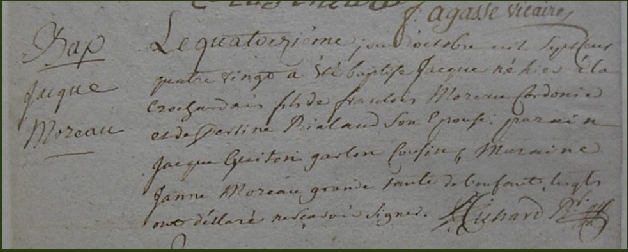 f. agasse vicaire
Bap
Jacque
Moreau
Le quatorzième jour d'octobre mil sept cens
quatre vingt a été baptise Jacque né hier à la
fils de francois Moreau Cordonie
et de Rialand Son Epouse. parain
Jacque Guiton garson Cousin, Maraine
Janne Moreau grande tante de l'enfant. lesqls
ont déllaré ne scavoir signer.